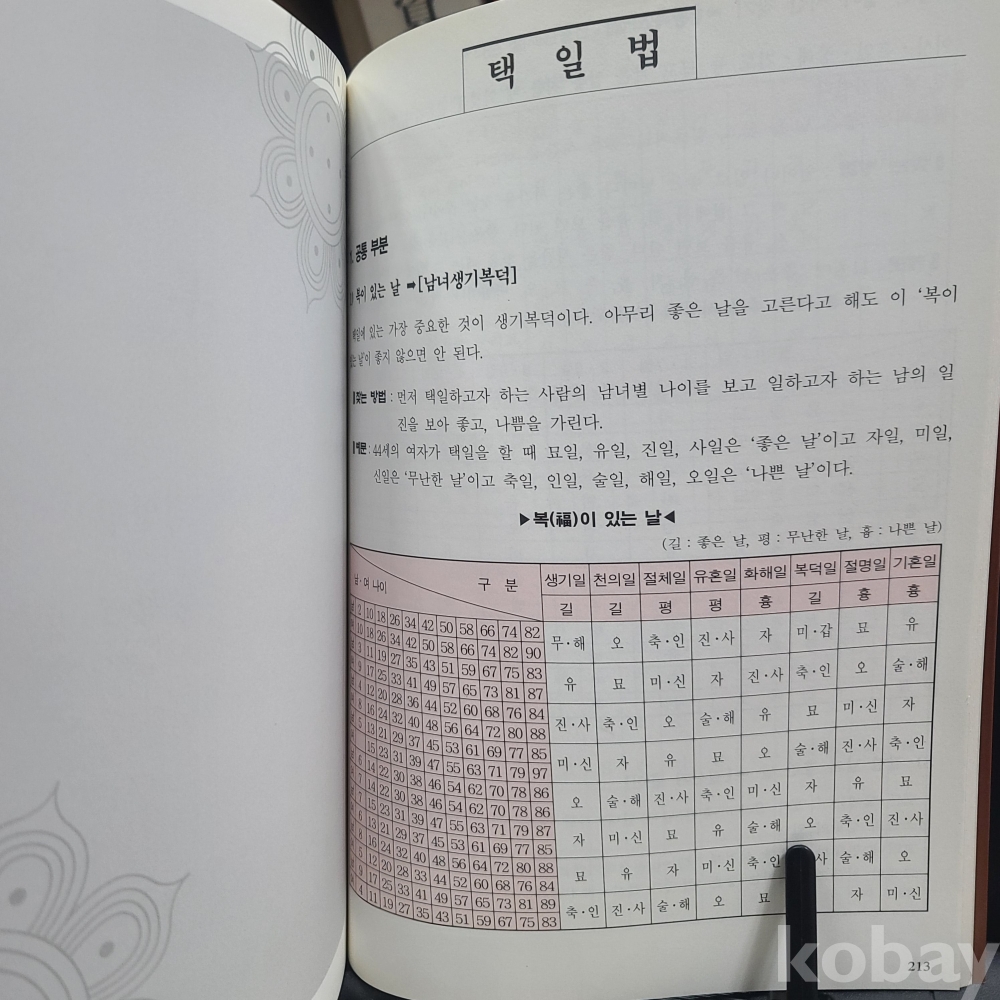 택 일 법
공통 부분
복이 있는 날 ➡[남녀생기복덕]
있는 가장 중요한 것이 생기복덕이다. 아무리 좋은 날을 고른다고 해도 이 ‘복이
날’이 좋지 않으면 안 된다.
찾는 방법 : 먼저 택일하고자 하는 사람의 남녀별 나이를 보고 일하고자 하는 남의 일
진을 보아 좋고, 나쁨을 가린다.
예문 : 44세의 여자가 택일을 할 때 묘일, 유일, 진일, 사일은 ‘좋은 날’이고 자일, 미일,
신일은 ‘무난한 날’이고 축일, 인일, 술일, 해일, 오일은 ‘나쁜 날’이다.
▶복(福)이 있는 날◀
(길 : 좋은 날, 평 : 무난한 날, 흉 : 나쁜 날)
남·여 나이 구 분 생기일 천의일 절체일 유혼일 화해일 복덕일 절명일 기혼일
길 길 평 평 흉 길 흉 흉
2 10 18 26 34 42 50 58 66 74 82
10 18 26 34 42 50 58 66 74 82 90
무·해 오 축·인 진·사 자 미·갑 묘 유
3 11 19 27 35 43 51 59 67 75 83
9 17 25 33 41 49 57 65 73 81 87
유 묘 미·신 자 진·사 축·인 오 술·해
4 12 20 28 36 44 52 60 68 76 84
8 16 24 32 40 48 56 64 72 80 88
진·사 축·인 오 술·해 유 묘 미·신 자
5 13 21 29 37 45 53 61 69 77 85
15 23 31 39 47 55 63 71 79 97
미·신 자 유 묘 오 술·해 진·사 축·인
6 14 22 30 38 46 54 62 70 78 86
14 22 30 38 46 54 62 70 78 86
오 술·해 진·사 축·인 미·신 자 유 묘
7 15 23 31 39 47 55 63 71 79 87
13 21 29 37 45 53 61 69 77 85
자 미·신 묘 유 술·해 오 축·인 진·사
16 24 32 40 48 56 64 72 80 88
12 20 28 33 44 52 60 68 76 84
묘 유 자 미·신 축·인 사 술·해 오
9 17 25 33 41 49 57 65 73 81 89
11 19 27 35 43 51 59 67 75 83
축·인 진·사 술·해 오 묘 자 미·신
213
kobay